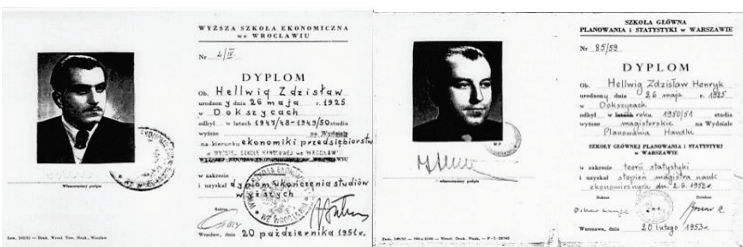 WYŻSZA SZKOŁA EKONOMICZNA
we WROCŁAWIU
Nr 2/IV.
DYPLOM
Ob. Hellwig Zdzisław
urodzony dnia 26 maja r. 1925
w Dokszycach
odbył w latach 1947/48-1949/50 studia
wyższe na Wydziale
na kierunku ekonomiki przedsiębiorstw
w WYŻSZEJ SZKOLE
w zakresie
i uzyskał dyplom ukończenia studiów
wyższych
Rektor
Wrocław, dnia 20 października 1951 r.
SZKOŁA GŁÓWNA
PLANOWANIA I STATYSTYKI w WARSZAWIE
Nr 85/59
DYPLOM
Ob. Hellwig Zdzisław Henryk
urodzony dnia 26 maja r. 1925
w Dokszycach
odbył w roku 1950/51 studia
wyższe magisterskie na Wydziale
Planowania Handlu
SZKOŁY GŁÓWNEJ PLANOWANIA I STATYSTYKI
w WARSZAWIE
w zakresie teorii statystyki
i uzyskał stopień magistra nauk
ekonomicznych dnia 2.6.1952 r.
Dziekan
Warszawa, dnia 20 lutego 1953 r.